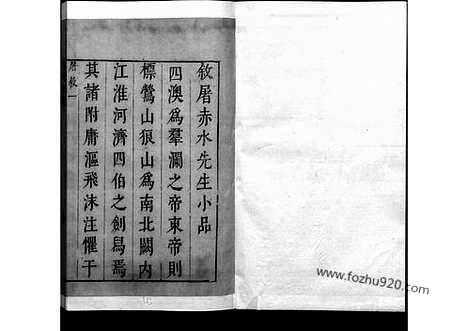 敘屠赤水先生小品
四澳為羣瀾之帝東帝則
標鶯山狼山為南北闕內
江淮河濟四伯之劍舄焉
其諸附庸漚飛沫注懼干
屠敘 一
www.fozhu920.com